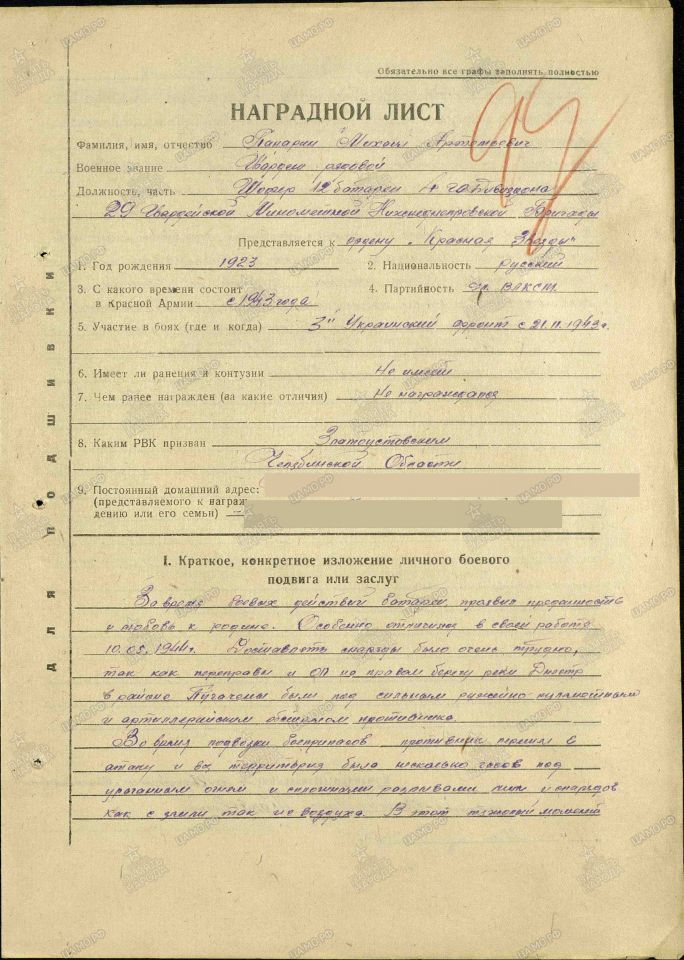 Обязательно все графы заполнять полностью
97
НАГРАДНОЙ ЛИСТ
Фамилия, имя, отчество Панарин Михаил Артемович
Военное звание Гвардии рядовой
Должность, часть Шофер 12 батареи 4 го Дивизиона
29 Гвардейской Минометной Нижнеднепровской Бригады
Представляется к ордену „Красная Звезды"
1. Год рождения 1923
2. Национальность Русский
3. С какого времени состоит
в Красной Армии с 1943 года
4. Партийность ВЛКСМ
5. Участие в боях (где и когда) 3й Украинский фронт с 21.11.1943г.
6. Имеет ли ранения и контузии Не имеет
7. Чем ранее награжден (за какие отличия) Не награждался
8. Каким РВК призван Златоустовским
Челябинской Области
9. Постоянный домашний адрес:
(представляемого к награж
дению или его семьи)
для подшивки
I. Краткое, конкретное изложение личного боевого
подвига или заслуг
Во время боевых действий батареи проявил преданность
и любовь к родине. Особенно отличился в своей работе
10.05.1944г. Доставлять снаряды было очень трудно,
так как переправы и ОП на правом берегу реки Днестр
в районе Пугачены были под сильным ружейно пулеметным
и артиллерийским обстрелом противника.
Во время подвозки боеприпасов противник перешел в
атаку и вся территория была несколько часов под
ураганным огнем и сплошными разрывами мин и снарядов
как с земли так и с воздуха. В этот тяжелый момент
ЦАМО.РФ
ПАМЯТЬ НАРОДА